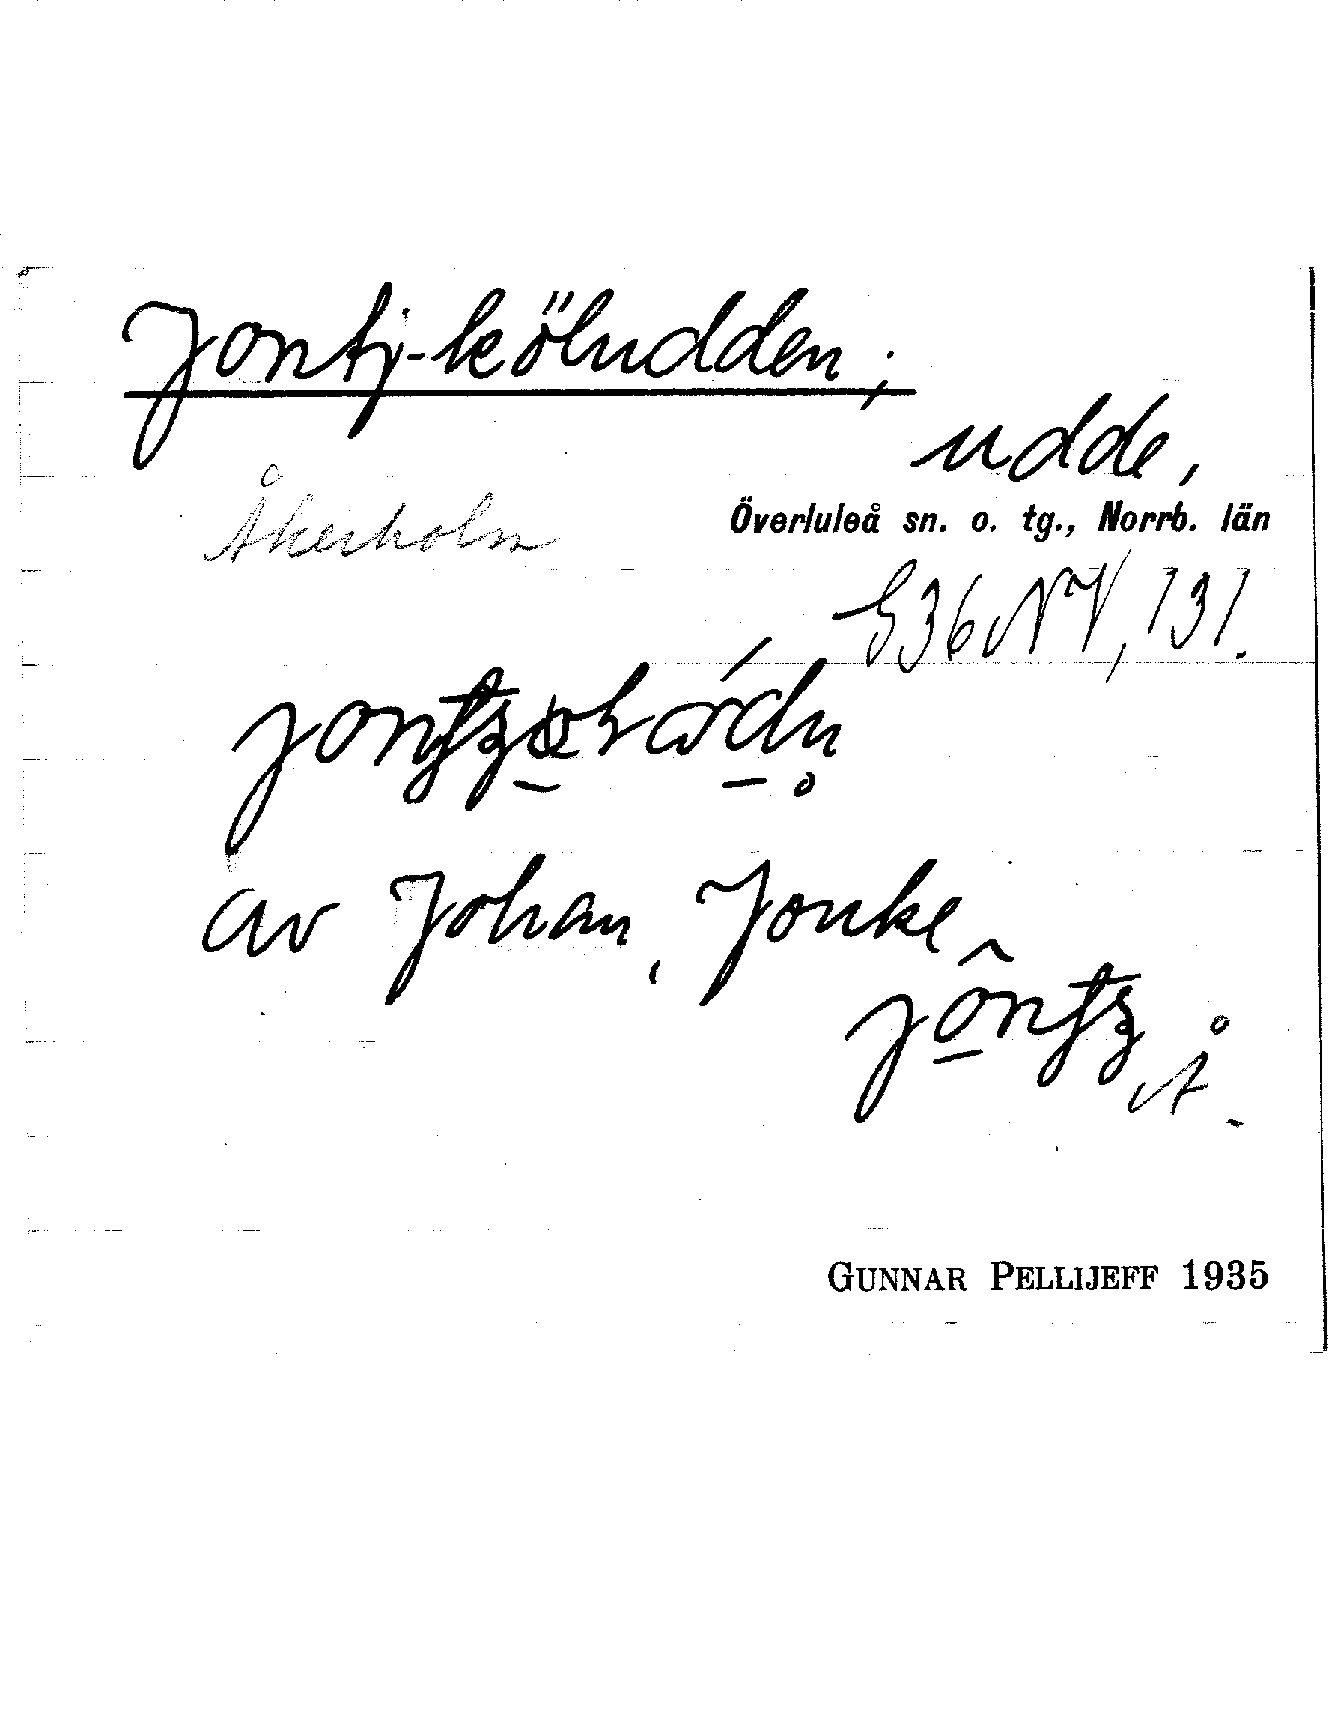 Jontj-köludden;
udde,
Åkerholm
Överluleå sn. o. tg., Norrb. län
G36NV, 131.
av Johan, Jonke
Å.
GUNNAR PELLIJEFF 1935